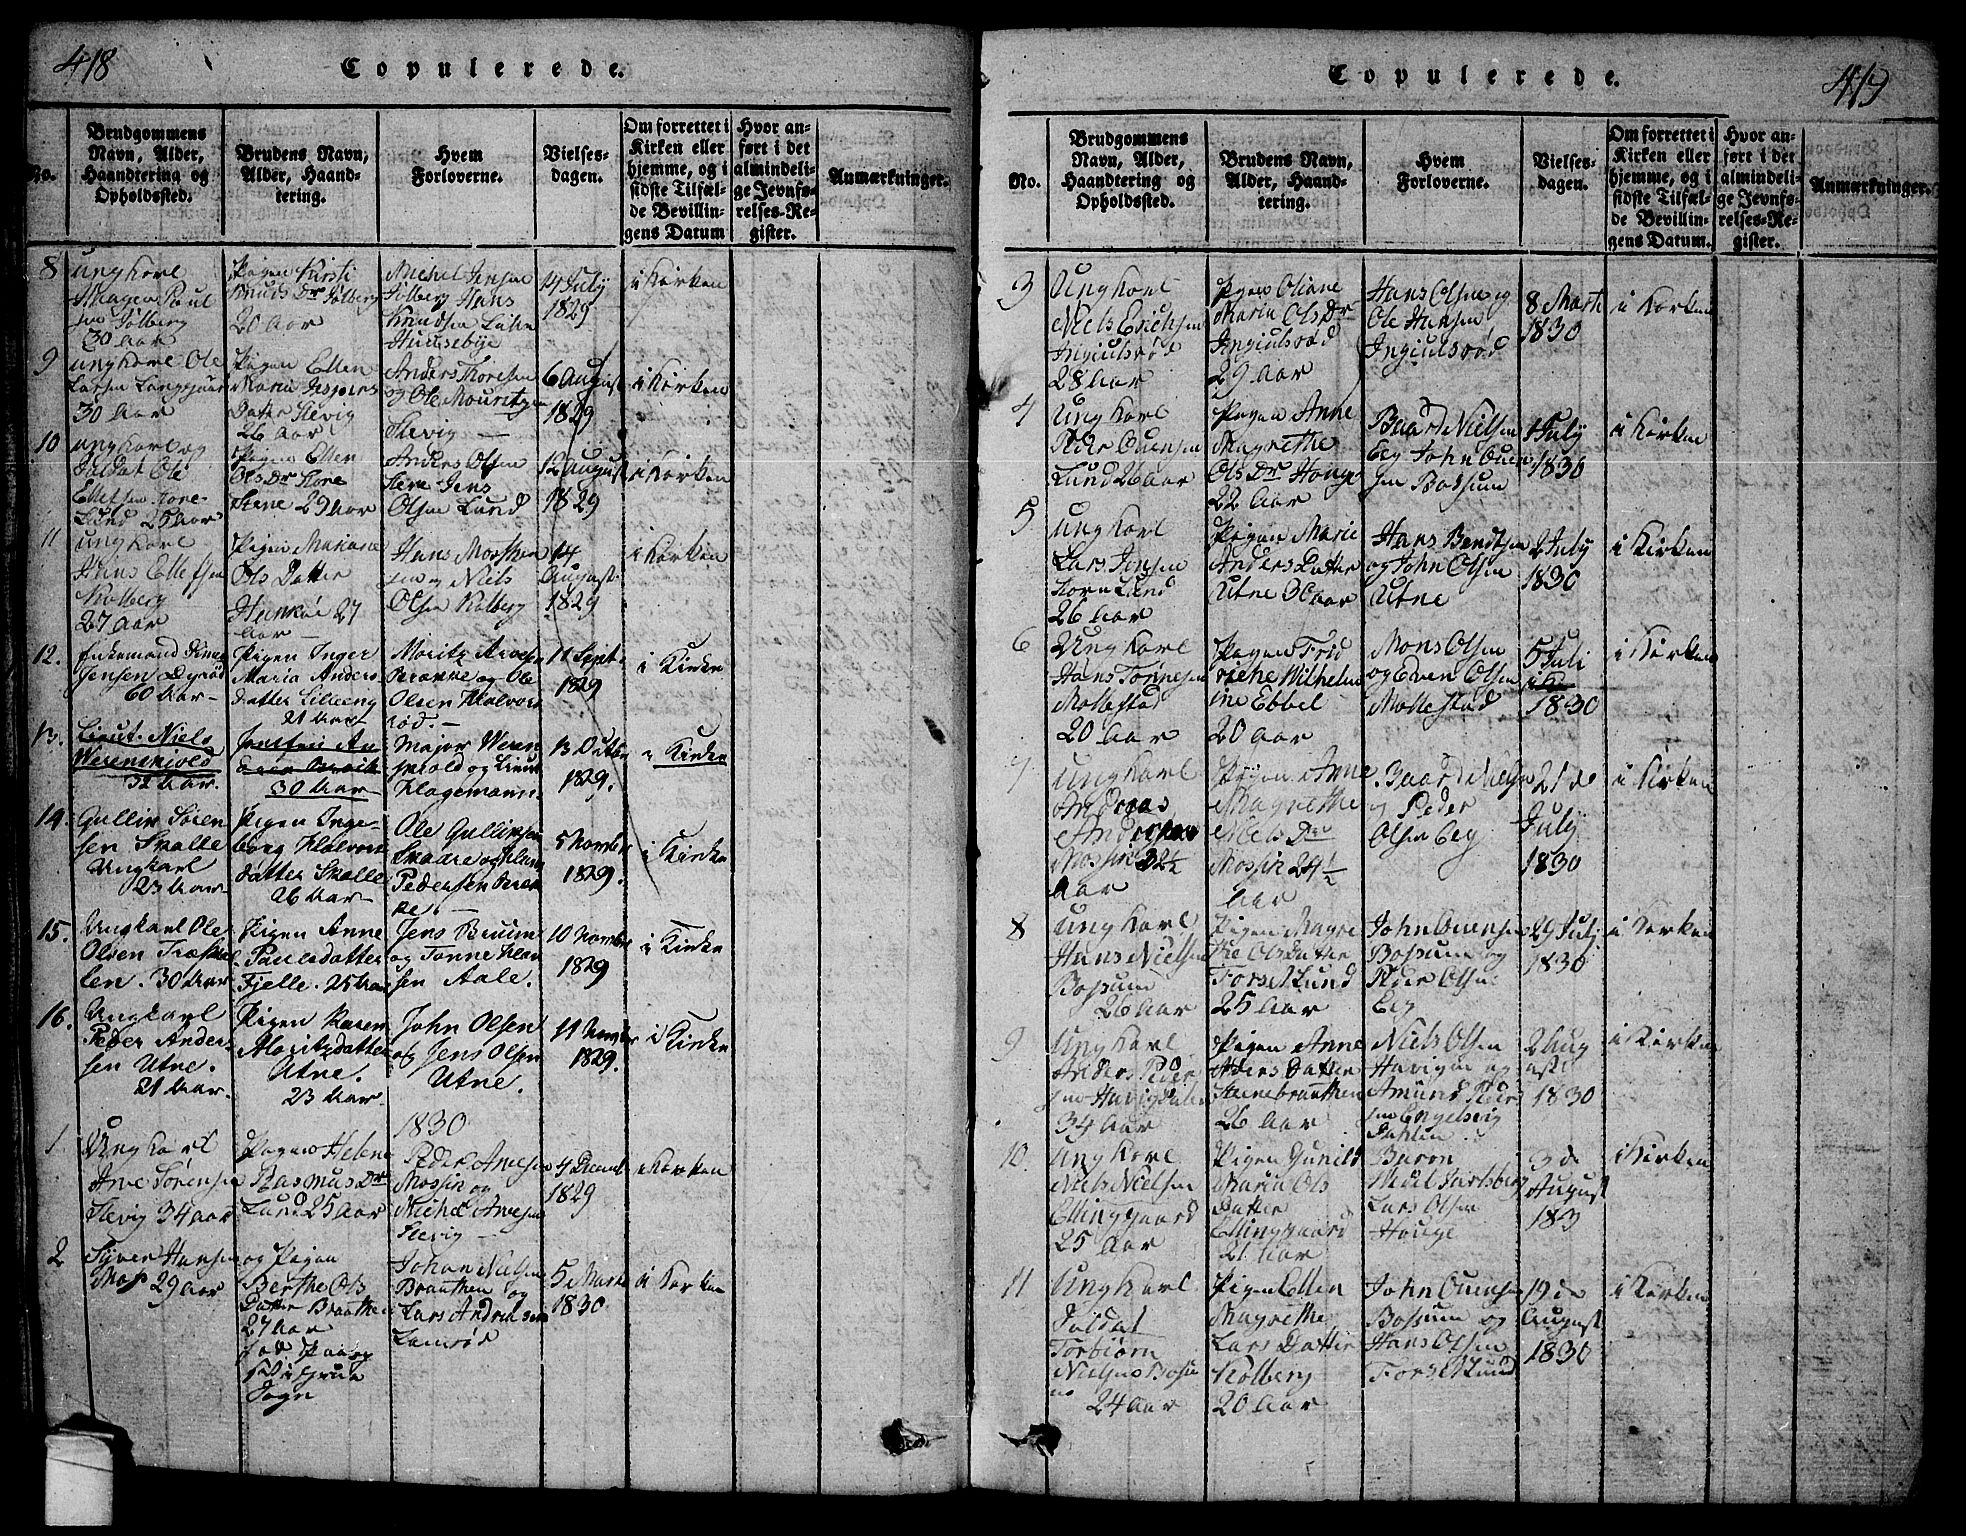 418
Copulerede.
No.
Brudgommens
Navn, Alder,
Haandtering og
Opholdssted.
Brudens Navn,
Alder, Haand-
tering.
Hvem
Forloverne.
Vielses-
dagen.
Om forrettet i
Kirken eller
hjemme, og i
sidste Tilfæl-
de Bevillin-
gens Datum
Hvor an-
ført i det
almindeli-
ge Jevnfø-
relses-Re-
gister.
Anmærkninger.
8
Ung Karl
Paul
sen Kolberg
30 aar
Pigen Kirsti
Knuds Dr Kolberg
20 aar
Michel Jensen
Kolberg Hans
Knudsen
14 July
1829
i Kirken
9
ung Karl Ole
Larsen Langgaard
30 aar
Pigen Ellen
Maria Jespers
Datter Slevig
26 aar
Anders Thoresen
og Ole Mouritzen
Slevig
6 August
1829
i Kirken
10
ung Karl og
Soldat Ole
Ellefsen Kore-
Lund 25 aar
Pigen Ellen
Ols Dr Kore
Stene 29 aar
Anders Olsen
Stene Jens
Olsen Lund
12 August
1829
i Kirken
11
ung Karl
Hans Ellefsen
Kolberg
27 aar
Pigen Mariane
Ols Datter
Hankøe 27
aar
Hans
sen og Niels
Olsen Kolberg
14
August
1829
i Kirken
12.
Enkemand
Jensen Dyrød
60 Aar
Pigen Inger
Maria Anders
datter Lilleeng
21 Aar
Moritz Arvesen
og Ole
Olsen Halvors
rød.
11 Septr
1829
i Kirken
13.
Lieut. Niels
Werenskiold
32 Aar.
30 Aar
Major Weren
skiold og Lieut
Hagemann.
13 Octbr
1829.
i Kirken
14.
Gullik Søren
sen Skalle
Ungkarl
23 Aar
Pigen Inge-
borg Halvors
datter Skalle
26 Aar
Ole Gulliksen
Skaare og
Pedersen
5 Novmbr
1829.
i Kirken
15.
Ungkarl Ole
Olsen
len. 30 Aar
Pigen Anne
Paulsdatter
Fjelle. 25 Aar
Jens Bruun
og Tønne Han
sen Aale.
10 Novmbr
1829
i Kirken
16.
Ungkarl
Peder Ander-
sen Utne.
21 Aar
Pigen Karen
Moritzdatter
Utne.
23 Aar
John Olsen
og Jens Olsen
Utne.
11 Novmbr
1829.
i Kirken
1830
1
Ung Karl
Arve Sørensen
Slevig 34 aar
Pigen Helene
Rasmus Dr
Lund 25 aar
Peder Arvesen
Mossin og
Michel Arvesen
Slevig
4 Decemb
1829
i Kirken
2
Syver Hansen
Moss 29 aar
og Pigen
Berthe Ols
Datter Braathen
27 aar
Sogn
Johan Nielsen
Braathen og
Lars Andreasen
5 Marts
1830
i Kirken
419
Copulerede.
No.
Brudgommens
Navn, Alder,
Haandtering og
Opholdssted.
Brudens Navn,
Alder, Haand-
tering.
Hvem
Forloverne.
Vielses-
dagen.
Om forrettet i
Kirken eller
hjemme, og i
sidste Tilfæl-
de Bevillin-
gens Datum.
Hvor an-
ført i det
almindeli-
ge Jevnfø-
relses-Re-
gister.
Anmærkninger.
3
Ung Karl
Niels Erichsen
Ingiulsrød
28 aar
Pigen Oliane
Maria Ols Dr
Ingiulsrød
29 aar
Hans Olsen og
Ole Hansen
Ingiulsrød
8 Marts
1830
i Kirken
4
Ung Karl
Peder Ouensen
Lund 26 aar
Pigen Anne
Magrethe
Ols Dr Houge
22 aar
Baard Nielsen
Eeg John Ouen
sen Bossum
1 July
1830
i Kirken
5
Ung Karl
Lars Jensen
Kore Lund
26 aar
Pigen Marie
Anders Datter
Utne 30 aar
Hans Bendtsen
og John Olsen
Utne
2 July
1830
i Kirken
6
Ung Karl
Hans Tønnesen
Mollestad
20 aar
Pigen Frid
riche Wilhelm
ine Ebbel
20 aar
Mons Olsen
og Even Olsen
Mollestad
5 Juli
1830
i Kirken
7
Ung Karl
Andreas
Andersen
Mossin 32½
Aar
Pigen Anne
Magrethe
Niels Dr
Mossin 29½
aar
Baard Nielsen
og Peder
Olsen Eeg
21 de
July
1830
i Kirken
8
Ung Karl
Hans Nielsen
Bossum
26 aar
Pigen Magre
the Ols Datter
Forsetlund
25 aar
John Ouensen
Bossum og
Peder Olsen
Eeg
29 July
1830
i Kirken
9
Ung Karl
Anders Peder
sen
34 aar
Pigen Anne
Anders Datter
Steenebraathen
26 aar
Niels Olsen
Havigen og
Amund Peder
sen Engelsvig
Dahlen
2 Aug
ust
1830
i Kirken
10
Ung Karl
Niels Nielsen
Ellinggaard
25 aar
Pigen Gunild
Maria Ols
Datter
Ellinggaard
21 aar
Baron
Lars Olsen
Houge
3 de
August
183
i Kirken
11
Ung Karl
Soldat
Torbiørn
Nielsen Bossu
m
24 aar
Pigen Ellen
Magrethe
Lars Datter
Kolberg
20 aar
John Ouensen
Bossum og
Hans Olsen
Forsetlund
19 de
August
1830
i Kirken